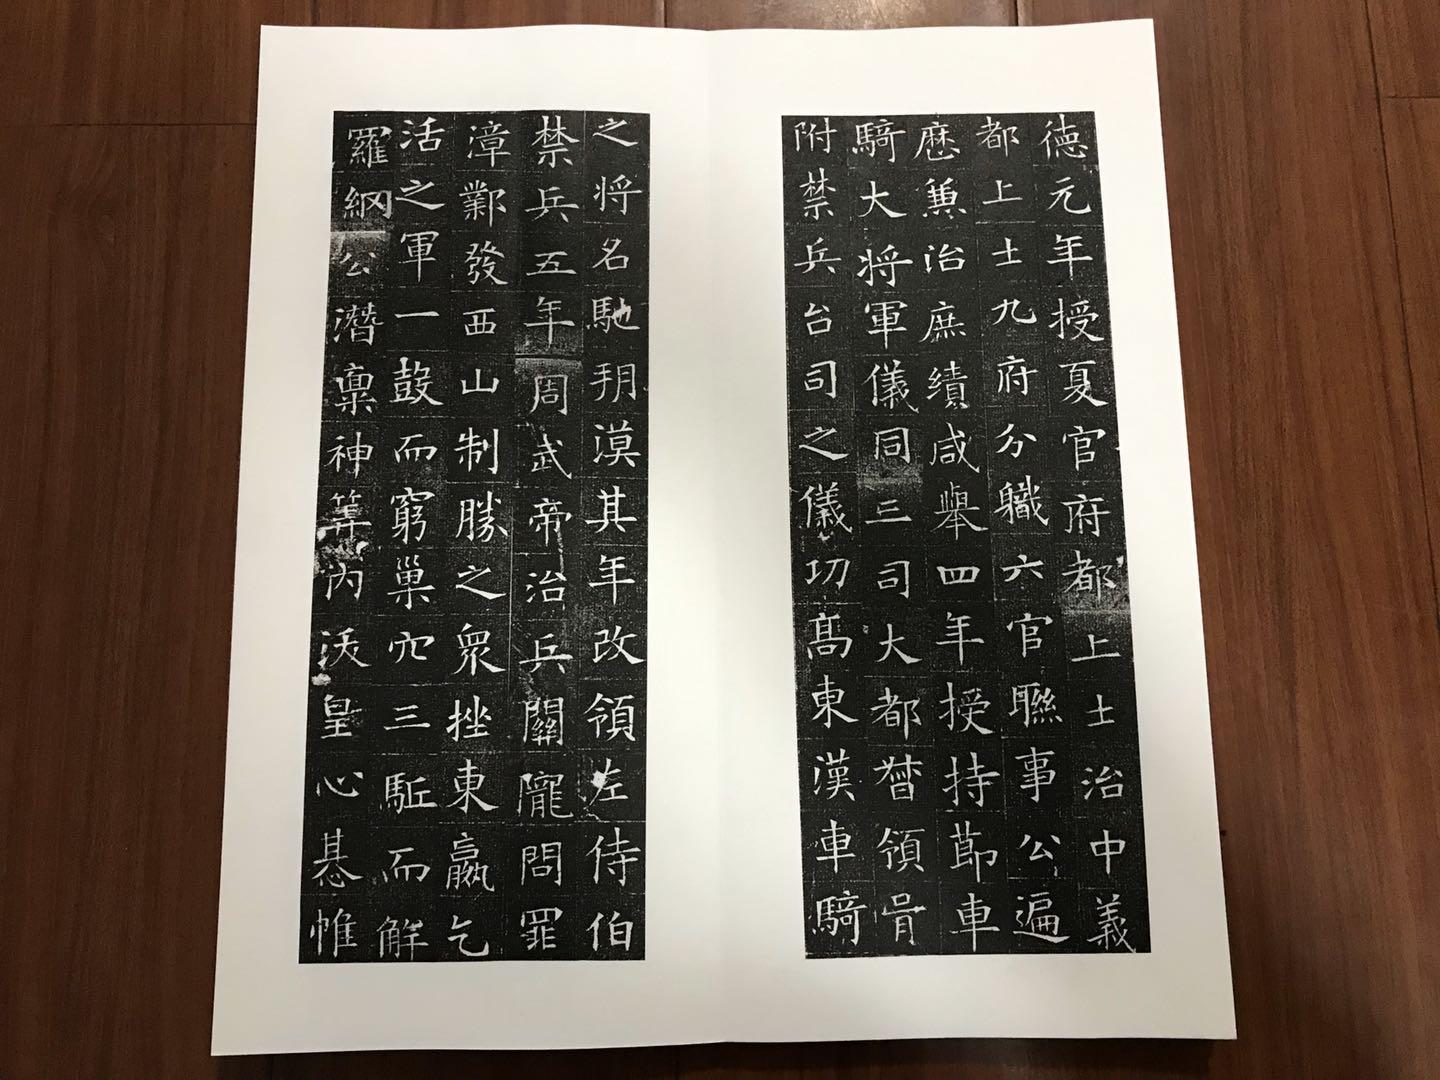 德元年授夏官府都上士治中義
都上士九府分職六官聯事公遍
歷兼治庶績咸舉四年授持節車
騎大将軍儀同三司大都督領胥
附禁兵台司之儀功髙東漢車騎
之将名馳朔漠其年改領左侍伯
禁兵五年周武帝治兵關隴問罪
漳鄴發西山制勝之眾挫東嬴乞
活之軍一鼔而窮巢穴三駈而解
羅網公潛稟神筭內沃皇心惎帷